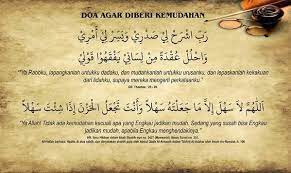 DOA AGAR DIBERI KEMUDAHAN
رَبِّ اشْرَحْ لِي صَدْرِي وَيَسِّرْ لِي أَمْرِي
وَاحْلُلْ عُقْدَةً مِنْ لِسَانِي يَفْقَهُوا قَوْلِي
"Ya Rabbku, lapangkanlah untukku dadaku, dan mudahkanlah untukku urusanku, dan lepaskanlah kekakuan
dari lidahku, supaya mereka mengerti perkataanku."
QS. Thaahaa: 25 - 28
اَللَّهُمَّ لَا سَهْلَ إِلَّا مَا جَعَلْتَهُ سَهْلًا وَأَنْتَ تَجْعَلُ الْحَزْنَ إِذَا شِئْتَ سَهْلًا
"Ya Allah! Tidak ada kemudahan kecuali apa yang Engkau jadikan mudah. Sedang yang susah bisa Engkau
jadikan mudah, apabila Engkau menghendakinya."